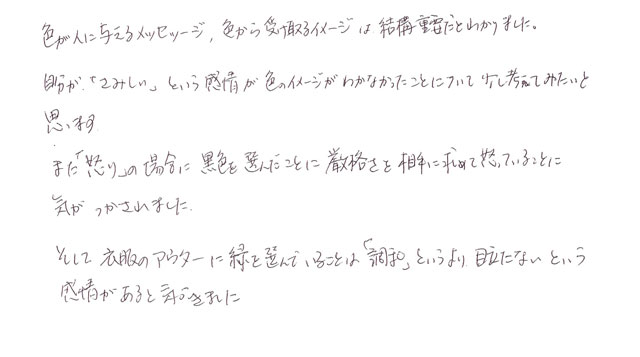 色が人に与えるメッセージ、色から受け取るイメージは結構重要だとわかりました。
自分が、「さみしい」という感情が色のイメージがわかなかったことについて少し考えてみたいと
思います
また「怒り」の場合に黒色を選んだことに厳格さを相手に求めて怒っていることに
気がつかされました。
そして衣服のアウターに緑を選んでいることは「調和」というより目立たないという
感情があると気づきました